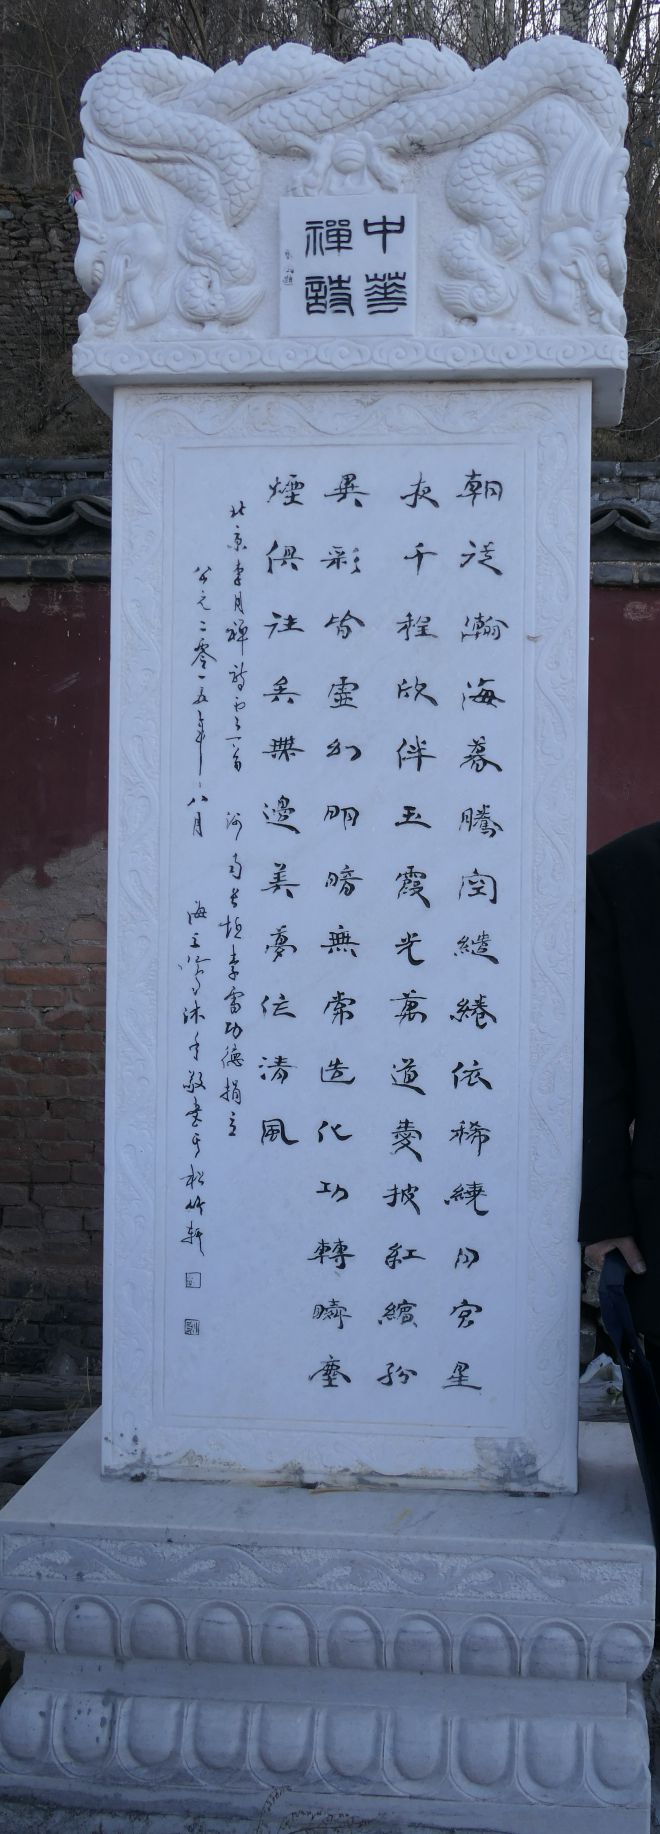 中華
禪詩
朝從瀚海暮騰空繾綣依稀繞月宮星
夜千程欣伴玉霞光萬道愛披紅繽紛
異彩皆靈幻明暗無常造化功轉瞬塵
煙俱往矣無邊美夢伫清風
北京李月禪詩 河南長垣李雷功德捐立
公元二零一五年八月 海 沐手敬書于松竹軒